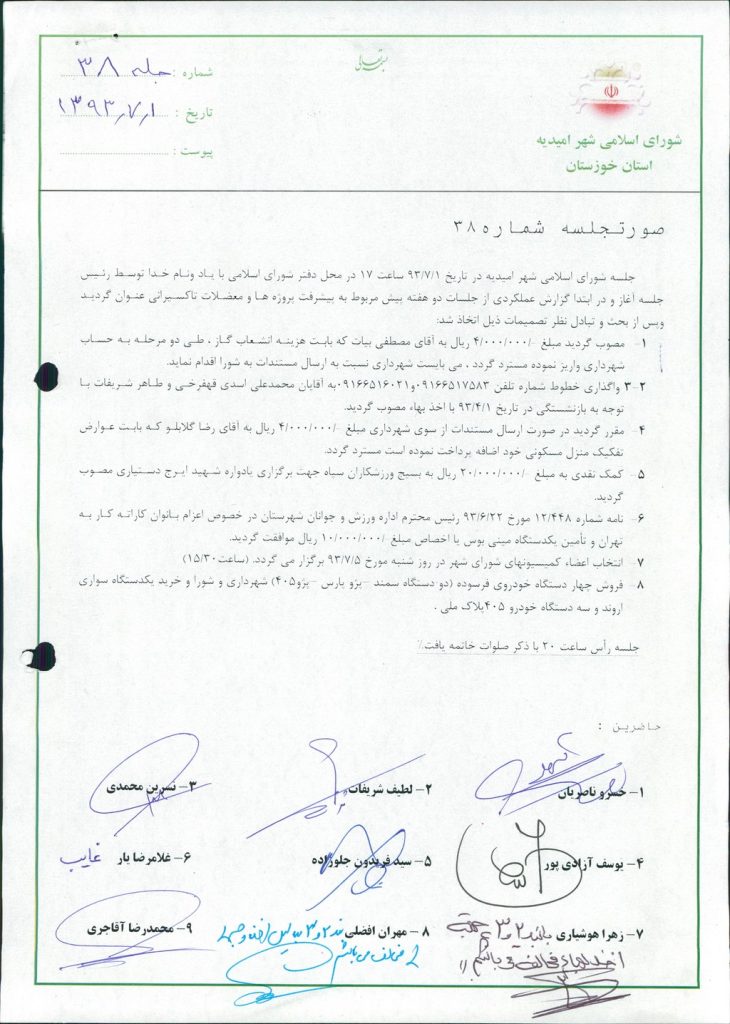 بسمه تعالی
شورای اسلامی شهر امیدیه
استان خوزستان
شماره : جلسه ۳۸
تاریخ : ۱۳۹۳/۷/۱
پیوست :
صورتجلسه شماره ۳۸
جلسه شورای اسلامی شهر امیدیه در تاریخ ۹۳/۷/۱ ساعت ۱۷ در محل دفتر شورای اسلامی با یاد ونام خدا توسط رئیس
جلسه آغاز و در ابتدا گزارش عملکردی از جلسات دو هفته پیش مربوط به پیشرفت پروژه ها و معضلات تاکسیرانی عنوان گردید
وپس از بحث و تبادل نظر تصمیمات ذیل اتخاذ شد:
۱- مصوب گردید مبلغ -/۴/۰۰۰/۰۰۰ ریال به آقای مصطفی بیات که بابت هزینه انشعاب گاز ، طی دو مرحله به حساب
شهرداری واریز نموده مسترد گردد ، می بایست شهرداری نسبت به ارسال مستندات به شورا اقدام نماید.
۲-۳ واگذاری خطوط شماره تلفن ۰۹۱۶۶۵۱۷۵۸۳و۰۹۱۶۶۵۱۶۰۲۱به آقایان محمدعلی اسدی قهفرخی و طاهر شریفات با
توجه به بازنشستگی در تاریخ ۹۳/۴/۱ با اخذ بهاء مصوب گردید.
۴- مقرر گردید در صورت ارسال مستندات از سوی شهرداری مبلغ -/۴/۰۰۰/۰۰۰ ریال به آقای رضا گلابلو که بابت عوارض
تفکیک منزل مسکونی خود اضافه پرداخت نموده است مسترد گردد.
۵- کمک نقدی به مبلغ -/۲۰/۰۰۰/۰۰۰ ریال به بسیج ورزشکاران سپاه جهت برگزاری یادواره شهید ایرج دستیاری مصوب
گردید.
۶- نامه شماره ۱۲/۴۴۸ مورخ ۹۳/۶/۲۲ رئیس محترم اداره ورزش و جوانان شهرستان در خصوص اعزام بانوان کاراته کار به
تهران و تأمین یکدستگاه مینی بوس با اخصاص مبلغ -/۱۰/۰۰۰/۰۰۰ ریال موافقت گردید.
۷- انتخاب اعضاء کمیسیونهای شورای شهر در روز شنبه مورخ ۹۳/۷/۵ برگزار می گردد. (ساعت۱۵/۳۰)
۸- فروش چهار دستگاه خودروی فرسوده (دو دستگاه سمند -پژو پارس -پژو۴۰۵) شهرداری و شورا و خرید یکدستگاه سواری
اروند و سه دستگاه خودرو ۴۰۵پلاک ملی .
جلسه رأس ساعت ۲۰ با ذکر صلوات خاتمه یافت٪
حاضرین :
۱- خسرو ناصریان ۲- لطیف شریفات ۳- نسرین محمدی
۴- یوسف آزادی پور ۵- سید فریدون جلوزاده ۶- غلامرضا یار غایب
۷- زهرا هوشیاری با بند ۲ و ۳ جهت ۸- مهران افضلی بند ۲ و ۳ ۹- محمدرضا آقاجری
اخذ بهاء مخالف می باشم // مخالف می باشم